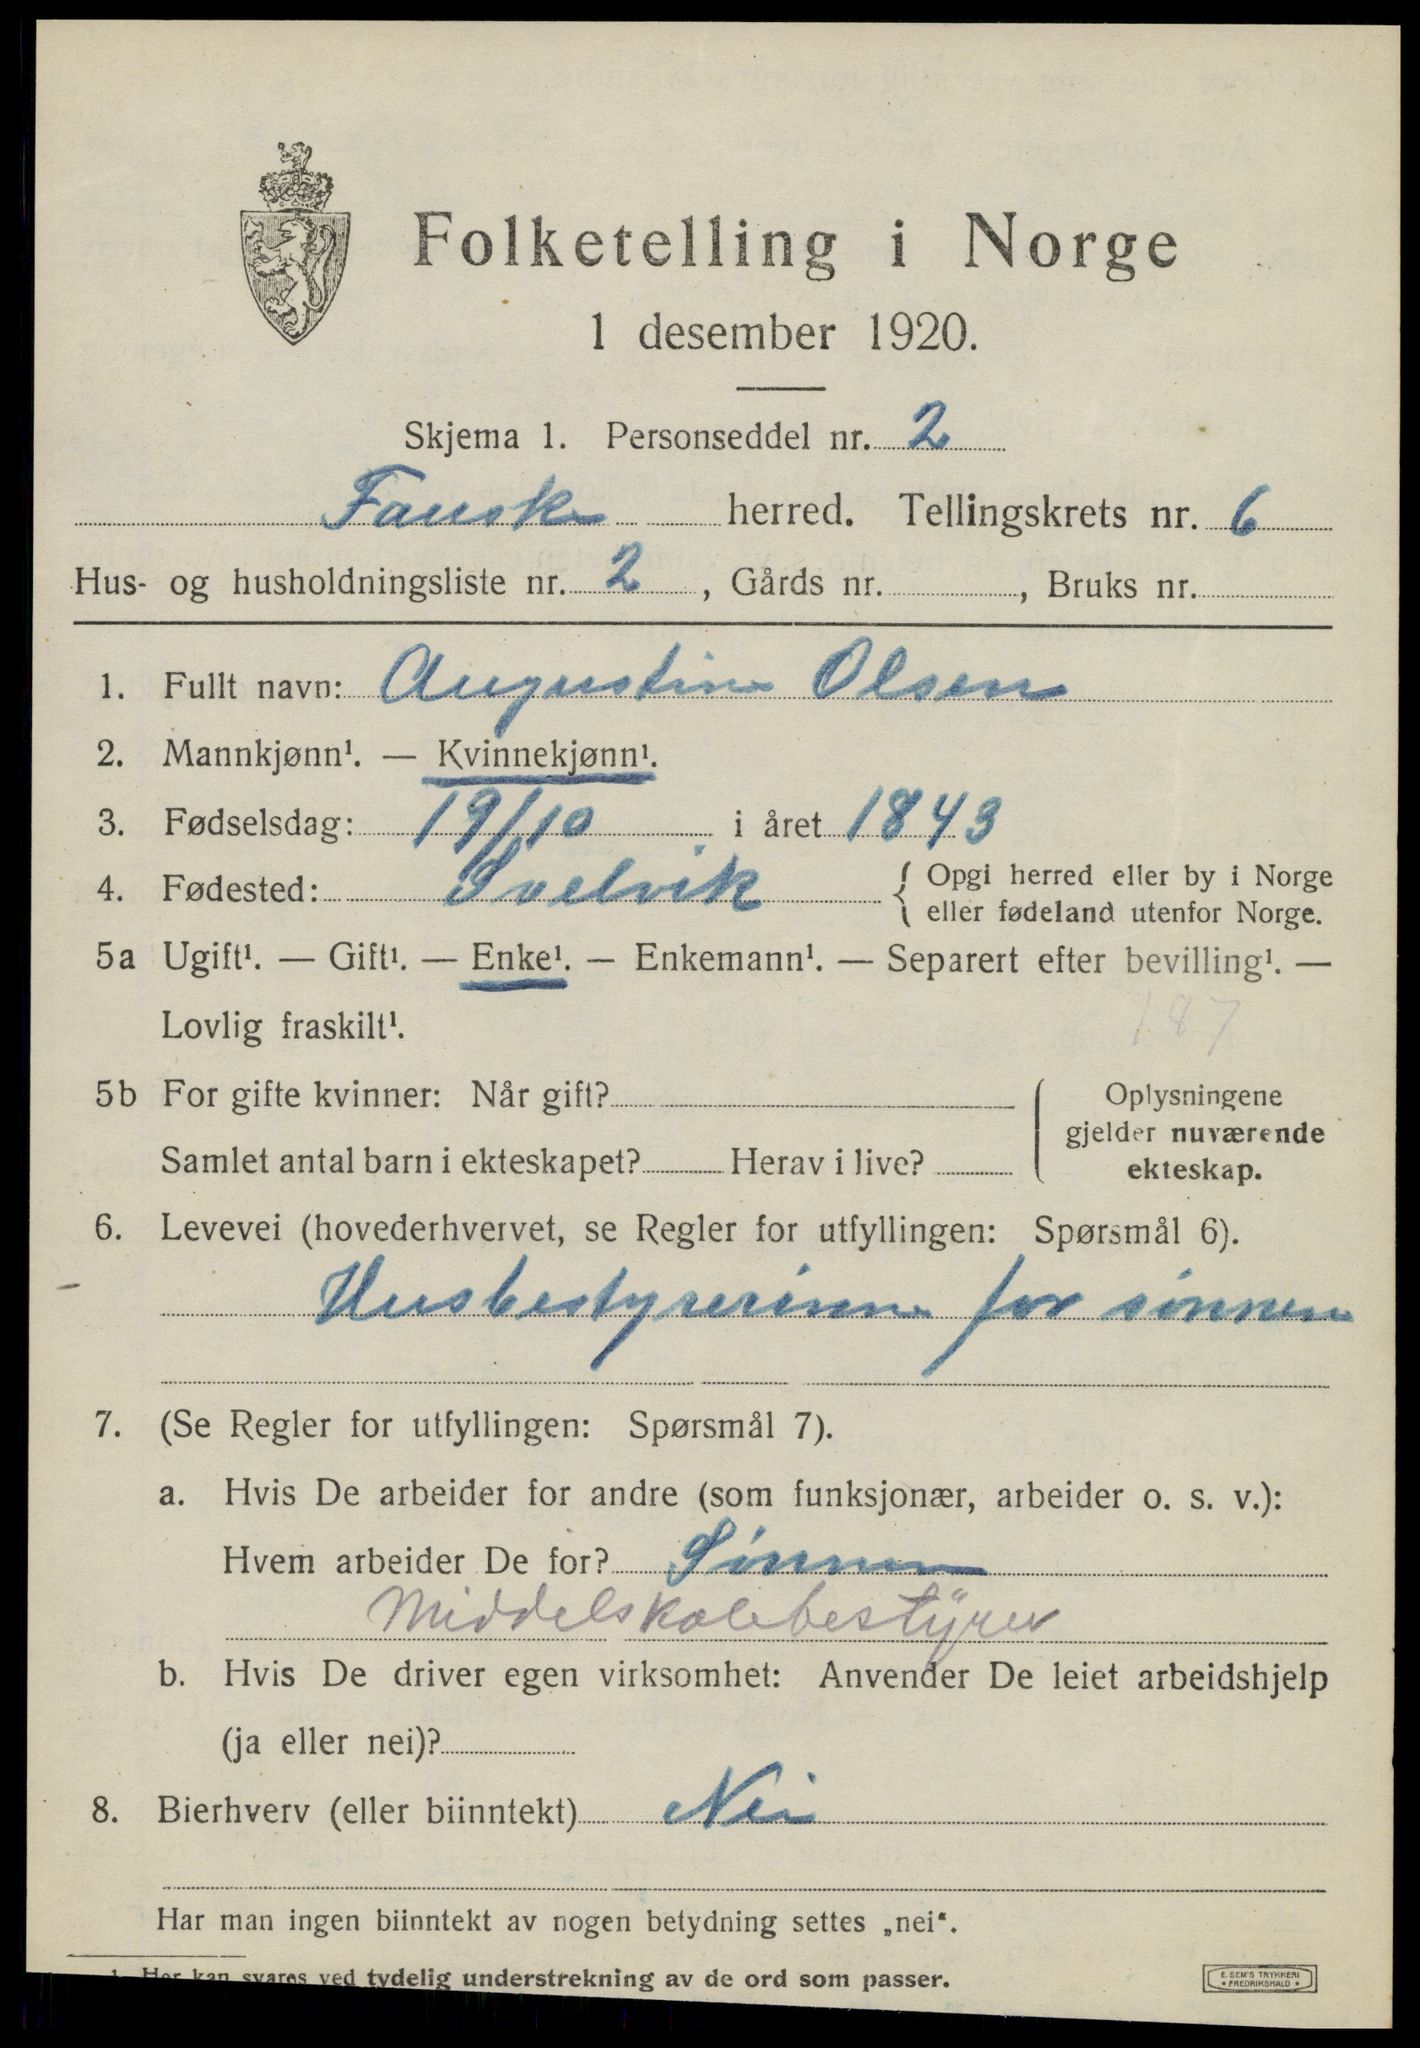 Folketelling i Norge
1 desember 1920.
Skjema 1. Personseddel nr. 2
Fauske herred. Tellingskrets nr. 6
Hus- og husholdningsliste nr. 2, Gårds nr. , Bruks nr.
1. Fullt navn: Augustine Olsen
2. Mannkjønn¹. — Kvinnekjønn¹.
3. Fødselsdag: 19/10 i året 1843
4. Fødested: Svelvik { Opgi herred eller by i Norge
eller fødeland utenfor Norge.
5a Ugift¹. — Gift¹. — Enke¹. — Enkemann¹. — Separert efter bevilling¹. —
Lovlig fraskilt¹. 187
5b For gifte kvinner: Når gift? Oplysningene
gjelder nuværende
Samlet antal barn i ekteskapet? Herav i live? ekteskap.
6. Levevei (hovederhvervet, se Regler for utfyllingen: Spørsmål 6).
Husbestyrerinne for sønnen
7. (Se Regler for utfyllingen: Spørsmål 7).
a. Hvis De arbeider for andre (som funksjonær, arbeider o. s. v.):
Hvem arbeider De for? Sønnen
Middelskolebestyrer
b. Hvis De driver egen virksomhet: Anvender De leiet arbeidshjelp
(ja eller nei)?
8. Bierhverv (eller biinntekt) Nei
Har man ingen biinntekt av nogen betydning settes „nei“.
1. Her kan svares ved tydelig understrekning av de ord som passer.
E. SEM'S TRYKKERI
• FREDRIKSHALD •